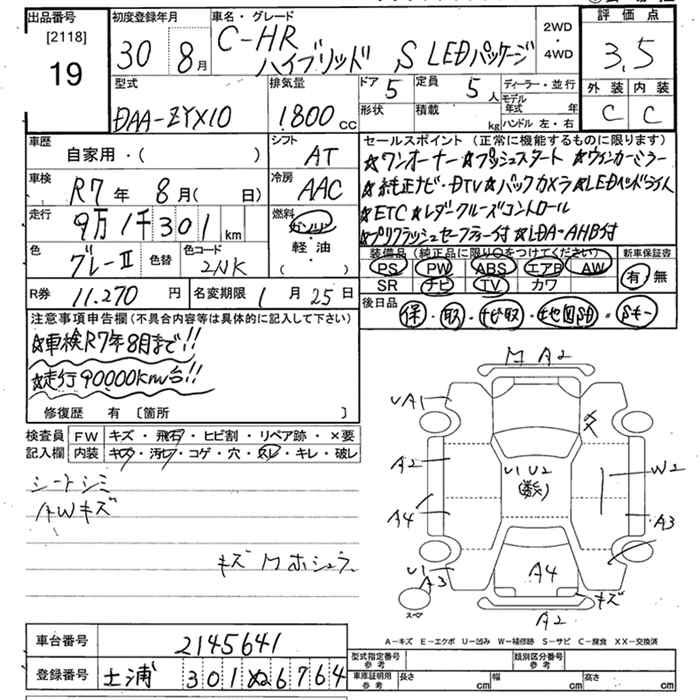 出品番号 [2118] 19
初度登録年月 30年 8月
車名・グレード C-HR ハイブリッド S LEDパッケージ
2WD・4WD
評価点 3.5
外装 内装
C C
型式 DAA-ZYX10
排気量 1800cc
ドア 5 形状
定員 5人 積載 kg
ディーラー・並行
モデル年式 年
ハンドル 左・右
車歴 自家用・( )
シフト AT
車検 R7年 8月( 日)
冷房 AAC
走行 9万1千301km
燃料 ガソリン・軽・油 ( )
色 グレーⅡ 色替
色コード 2NK
R券 11,270円
名変期限 1月25日
セールスポイント (正常に機能するものに限ります)
☆ワンオーナー☆プッシュスタート ☆ウィンカーミラー
☆純正ナビ・DTV☆バックカメラ☆LEDヘッドライト
☆ETC☆レダークルーズコントロール
☆プリクラッシュセーフティー付☆LDA・AHB付
装備品 (純正品に限り〇をつけてください)
PS PW ABS エアB AW
SR ナビ TV カワ
新車保証書 有・無
後日品 保・取・ナビ取・ナビ地図SD・Sキー
注意事項申告欄 (不具合内容等は具体的に記入して下さい)
☆車検R7年8月まで!!
☆走行90000km台!!
修復歴 有〔箇所 〕
検査員記入欄
FW キズ・飛石・ヒビ割・リペア跡・×要
内装 キズ・汚レ・コゲ・穴・スレ・キレ・破レ
シートシミ
AWキズ
キズ M ホシュラ
M A2
UA1
A2
A4
U1 A3
U1 U2 (数)
W2
A3
A4
キズ
A2
スペア
A-キズ E-エクボ U-凹み W-補修跡 S-サビ C-腐食 XX-交換済
車台番号 2145641
登録番号 土浦 301 ぬ 6764
型式指定番号 参考
類別区分番号 参考
車庫証明用 参考 長さ cm 幅 cm 高さ cm